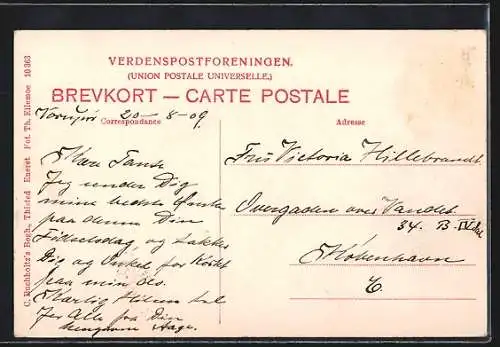 VERDENSPOSTFORENINGEN.
(UNION POSTALE UNIVERSELLE.)
BREVKORT — CARTE POSTALE
Correspondance
Adresse
20-8-09
Kære Tante
Jeg sender Dig
mine bedste Ønsker
paa denne Din
Fødselsdag, og takker
Dig og Onkel for Kortet
paa min do.
Kærlig Hilsen til
Jer Alle fra Din
hengivne Aage.
Frú Victoria Hillebrandt
Overgaden over Vandet
34. B. IV Sal
København
C.
C. Buchholtz's Bogh., Thisted Eneret Fot. Th. Ellemøe 10363